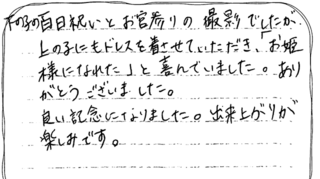 下の子の百日祝いとお宮参りの撮影でしたが、
上の子にもドレスを着させていただき、「お姫
様になれた」と喜んでいました。あり
がとうございました。
良い記念になりました。出来上がりが
楽しみです。